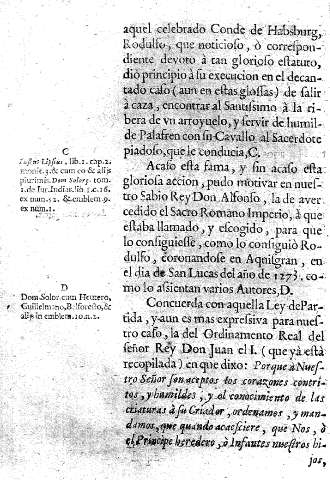 aquel celebrado Conde de Habsburg,
Rodulfo, que noticioso, ò correspon-
diente devoto à tan glorioso estatuto,
diò principio à su execucion en el decan-
tado caso (aun en estas glossas) de salir
à caza, encontrar al Santissimo à la ri-
bera de un arroyuelo, y servir de humil-
de Palafren con su Cavallo al Sacerdote
piadoso, que le conducia, C.
Acaso esta fama, y sin acaso esta
gloriosa accion, pudo motivar en nues-
tro Sabio Rey Don Alfonso, la de aver
cedido el Sacro Romano Imperio, à que
estaba llamado, y escogido, para que
lo consiguiesse, como lo consiguiò Ro-
dulfo, coronandose en Aquisgran, en
el dia de San Lucas del año de 1273. co-
mo lo assientan varios Autores, D.
Concuerda con aquella Ley de Par-
tida, y aun es mas expressiva para nues-
tro caso, la del Ordinamento Real del
señor Rey Don Juan el I. (que yà està
recopilada) en que dixo: Porque à Nues-
tro Señor son aceptos los corazones contri-
tos, y humildes, y el conocimiento de las
criaturas à su Criador, ordenamos, y man-
damos, que quando acaesciere, que Nos, ò
el Principe heredero, ò Infantes nuestros hi-
jos,
C
Justus Lipsius, lib. 1. cap. 2.
monit. 3. & cum eo & alijs
plurimis. Dom Solorz. tom.
1. de Iur. Indiar. lib
ex num. 52. & emblem. 9.
ex num. 1.
D
Dom. Solor. cum
Guillelmano,
alijs in emblem. 10. n. 2.